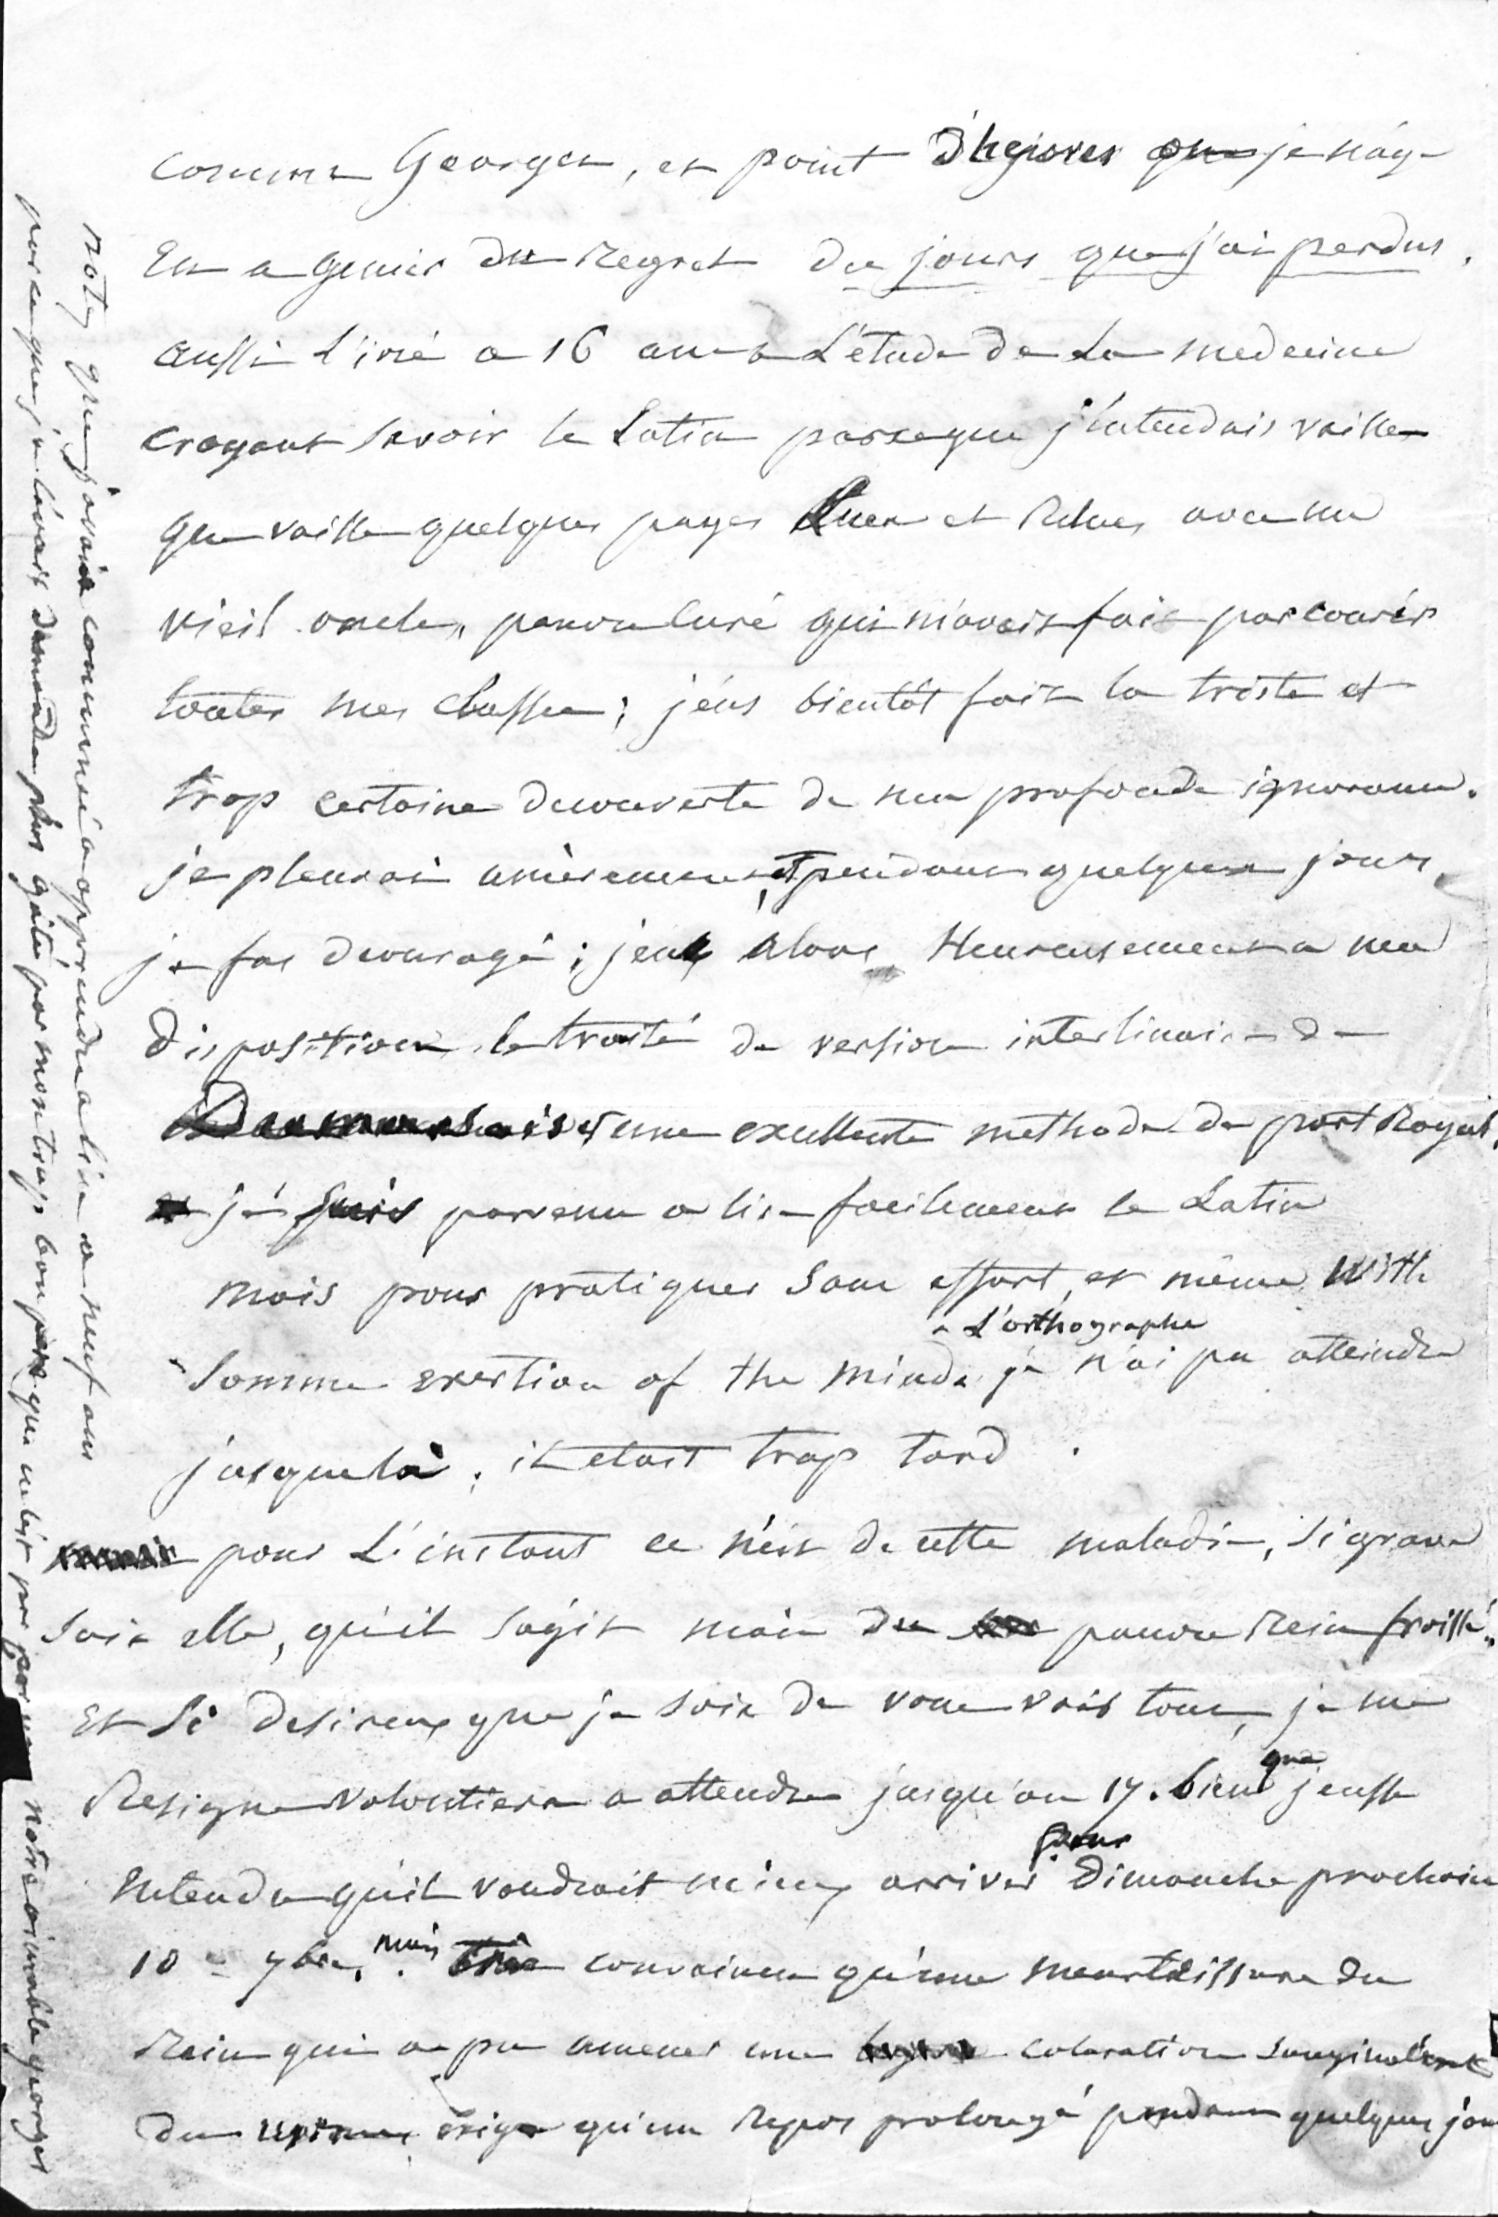 comme Georges, et point d'hyiver que je n'ay
Eu a gemir du Regret des jours que j'ai perdus.
aussi Livré a 16 ans a L'étude de La medecine
croyant savoir le Latin parceque j'entendais vaille
que vaille quelques pages Lues et Relues avec un
vieil oncle, pauvre Curé qui m'avait fait parcourir
toutes mes classes; j'eus bientôt fait la triste et
trop certaine decouverte de ma profonde ignorance.
je pleurai amèrement, et pendant quelques jours,
je fus decouragé; j'eus alors Heureusement a ma
disposition le traité de version interlineaire de
Dumarsais et une excellente methode de port Royal,
je suis parvenu a lire facilement le Latin
mais pour pratiquer sans effort, et même with
somme exertion of the minde, L'orthographe je n'ai pu atteindre
jusque là; il etait trop tard.
pour L'instant ce n'est de cette maladie, si grave
soit elle, qu'il s'agit mais du pauvre Rein froissé,
Et si desireux que je sois de vous voir tous, je me
Resigne volontiers a attendre jusqu'au 17. bien que j'eusse
entendu qu'il voudrait mieux arriver pour Dimanche prochain
10 9bre, mais convaincu qu'une meurtrissure du
Rein qui a pu amener une coloration sanguinolente
des urines, exige qu'un Repos prolongé pendant quelques jou
notez que j'avais commencé a apprendre a lire a neuf ans
parce que je l'avais demandé plus gâté par mon trop bon pere que ne l'est par notre aimable georges